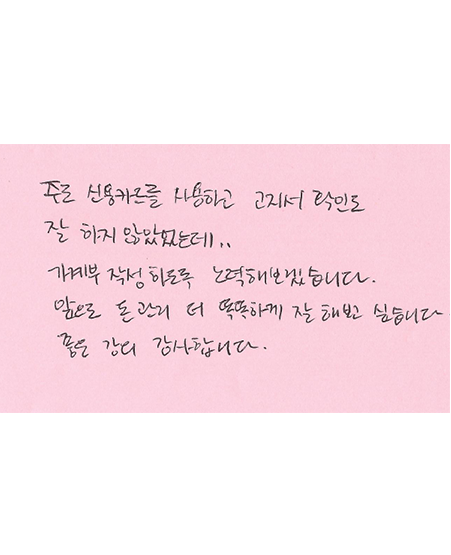 주로 신용카드를 사용하고 고지서 확인도
잘 하지 않았었는데..
가계부 작성 하도록 노력해보겠습니다.
앞으로 돈 관리 더 똑똑하게 잘 해보고 싶습니다
좋은 강의 감사합니다.